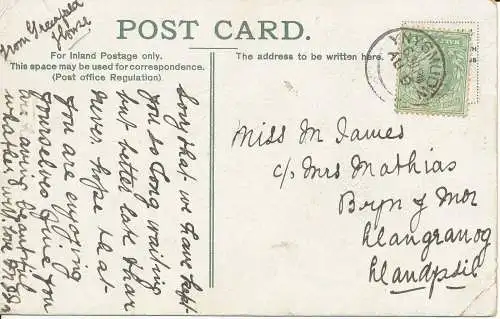 From Greenfield
House
POST CARD.
For Inland Postage only.
This space may be used for correspondence.
(Post office Regulation).
The address to be written here.
Sorry that we have kept
you so long waiting
but better late than
never, hope that
you are enjoying
yourselves fine you
are having beautiful
weather
Miss M James
c/o Mrs Mathias
Bryn y Mor
Llangranog
Llandyssil